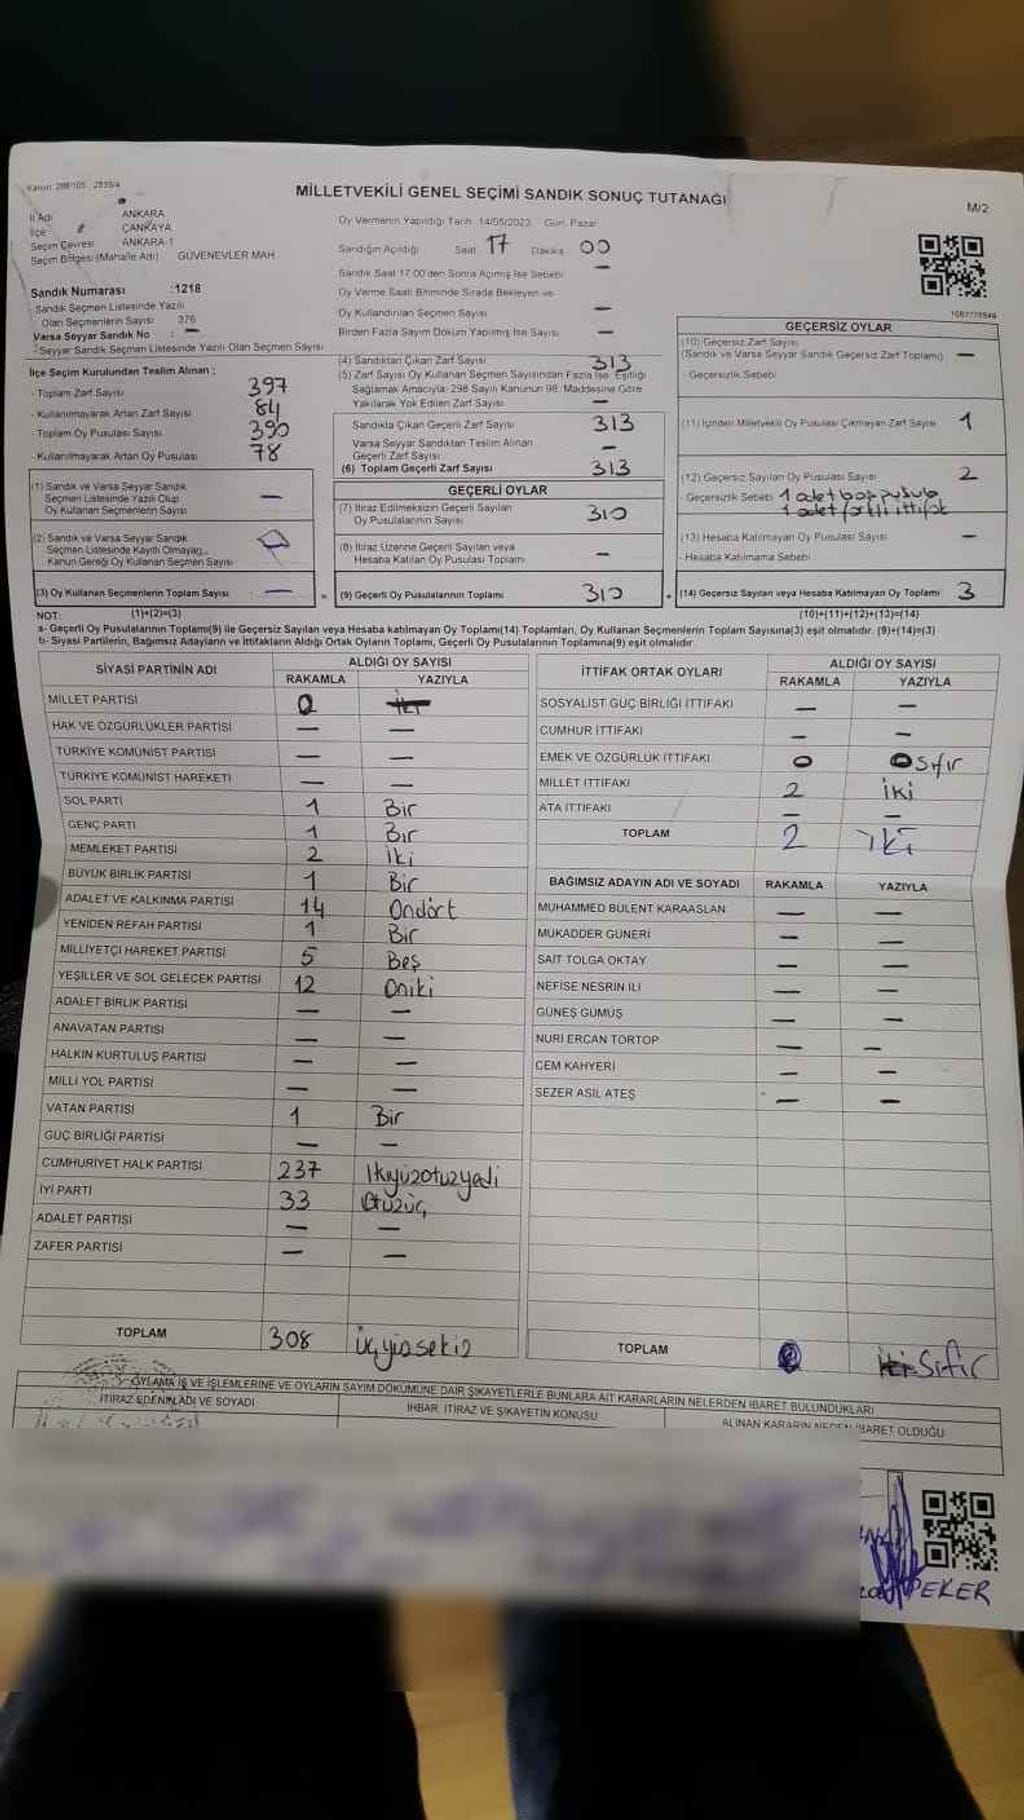 Kanun: 298/105 , 2839/4
MİLLETVEKİLİ GENEL SEÇİMİ SANDIK SONUÇ TUTANAĞI
M/2
İl Adı ANKARA
İlçe ÇANKAYA
Seçim Çevresi ANKARA-1
Seçim Bölgesi (Mahalle Adı) GÜVENEVLER MAH.
Sandık Numarası :1218
Sandık Seçmen Listesinde Yazılı
Olan Seçmenlerin Sayısı 376
Varsa Seyyar Sandık No : —
- Seyyar Sandık Seçmen Listesinde Yazılı Olan Seçmen Sayısı
İlçe Seçim Kurulundan Teslim Alınan :
- Toplam Zarf Sayısı 397
- Kullanılmayarak Artan Zarf Sayısı 84
- Toplam Oy Pusulası Sayısı 390
- Kullanılmayarak Artan Oy Pusulası 78
(1) Sandık ve Varsa Seyyar Sandık
Seçmen Listesinde Yazılı Olup
Oy Kullanan Seçmenlerin Sayısı —
(2) Sandık ve Varsa Seyyar Sandık
Seçmen Listesinde Kayıtlı Olmayan,
Kanun Gereği Oy Kullanan Seçmen Sayısı
(3) Oy Kullanan Seçmenlerin Toplam Sayısı —
Oy Vermenin Yapıldığı Tarih: 14/05/2023 Gün: Pazar
Sandığın Açıldığı Saat 17 Dakika 00
Sandık Saat 17:00'den Sonra Açılmış İse Sebebi —
Oy Verme Saati Bitiminde Sırada Bekleyen ve
Oy Kullandırılan Seçmen Sayısı —
Birden Fazla Sayım Döküm Yapılmış İse Sayısı —
(4) Sandıktan Çıkan Zarf Sayısı 313
(5) Zarf Sayısı Oy Kullanan Seçmen Sayısından Fazla İse, Eşitliği
Sağlamak Amacıyla; 298 Sayılı Kanunun 98. Maddesine Göre
Yakılarak Yok Edilen Zarf Sayısı —
Sandıkta Çıkan Geçerli Zarf Sayısı 313
Varsa Seyyar Sandıktan Teslim Alınan
Geçerli Zarf Sayısı —
(6) Toplam Geçerli Zarf Sayısı 313
GEÇERLİ OYLAR
(7) İtiraz Edilmeksizin Geçerli Sayılan
Oy Pusulalarının Sayısı 310
(8) İtiraz Üzerine Geçerli Sayılan veya
Hesaba Katılan Oy Pusulası Toplamı —
= (9) Geçerli Oy Pusulalarının Toplamı 310
1087779546
GEÇERSİZ OYLAR
(10) Geçersiz Zarf Sayısı
(Sandık ve Varsa Seyyar Sandık Geçersiz Zarf Toplamı) —
- Geçersizlik Sebebi
(11) İçinden Milletvekili Oy Pusulası Çıkmayan Zarf Sayısı 1
(12) Geçersiz Sayılan Oy Pusulası Sayısı 2
- Geçersizlik Sebebi 1 adet boş pusula
1 adet farklı ittifak
(13) Hesaba Katılmayan Oy Pusulası Sayısı —
- Hesaba Katılmama Sebebi
+ (14) Geçersiz Sayılan veya Hesaba Katılmayan Oy Toplamı 3
NOT: (1)+(2)=(3) (10)+(11)+(12)+(13)=(14)
a- Geçerli Oy Pusulalarının Toplamı(9) ile Geçersiz Sayılan veya Hesaba katılmayan Oy Toplamı(14) Toplamları, Oy Kullanan Seçmenlerin Toplam Sayısına(3) eşit olmalıdır. (9)+(14)=(3)
b- Siyasi Partilerin, Bağımsız Adayların ve İttifakların Aldığı Ortak Oyların Toplamı, Geçerli Oy Pusulalarının Toplamına(9) eşit olmalıdır
SİYASİ PARTİNİN ADI ALDIĞI OY SAYISI
RAKAMLA YAZIYLA
MİLLET PARTİSİ 0
HAK VE ÖZGÜRLÜKLER PARTİSİ — —
TÜRKİYE KOMÜNİST PARTİSİ — —
TÜRKİYE KOMÜNİST HAREKETİ — —
SOL PARTİ 1 Bir
GENÇ PARTİ 1 Bir
MEMLEKET PARTİSİ 2 İki
BÜYÜK BİRLİK PARTİSİ 1 Bir
ADALET VE KALKINMA PARTİSİ 14 Ondört
YENİDEN REFAH PARTİSİ 1 Bir
MİLLİYETÇİ HAREKET PARTİSİ 5 Beş
YEŞİLLER VE SOL GELECEK PARTİSİ 12 Oniki
ADALET BİRLİK PARTİSİ — —
ANAVATAN PARTİSİ — —
HALKIN KURTULUŞ PARTİSİ — —
MİLLİ YOL PARTİSİ — —
VATAN PARTİSİ 1 Bir
GÜÇ BİRLİĞİ PARTİSİ — —
CUMHURİYET HALK PARTİSİ 237 İkiyüzotuzyedi
İYİ PARTİ 33 Otuzüç
ADALET PARTİSİ — —
ZAFER PARTİSİ — —
TOPLAM 308 üçyüzsekiz
İTTİFAK ORTAK OYLARI ALDIĞI OY SAYISI
RAKAMLA YAZIYLA
SOSYALİST GÜÇ BİRLİĞİ İTTİFAKI — —
CUMHUR İTTİFAKI — —
EMEK VE ÖZGÜRLÜK İTTİFAKI 0 Sıfır
MİLLET İTTİFAKI 2 İki
ATA İTTİFAKI — —
TOPLAM 2 İki
BAĞIMSIZ ADAYIN ADI VE SOYADI RAKAMLA YAZIYLA
MUHAMMED BÜLENT KARAASLAN — —
MUKADDER GÜNERİ — —
SAİT TOLGA OKTAY — —
NEFİSE NESRİN İLİ — —
GÜNEŞ GÜMÜŞ — —
NURİ ERCAN TORTOP — —
CEM KAHYERİ — —
SEZER ASİL ATEŞ — —
TOPLAM Sıfır
OYLAMA İŞ VE İŞLEMLERİNE VE OYLARIN SAYIM DÖKÜMÜNE DAİR ŞİKAYETLERLE BUNLARA AİT KARARLARIN NELERDEN İBARET BULUNDUKLARI
İTİRAZ EDENİN ADI VE SOYADI İHBAR, İTİRAZ VE ŞİKAYETİN KONUSU ALINAN KARARIN NEDEN İBARET OLDUĞU
PEKER